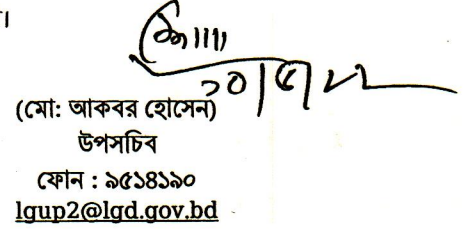 ।
(মো: আকবর হোসেন)
উপসচিব
ফোন : ৯৫১৪১৯০
lgup2@lgd.gov.bd